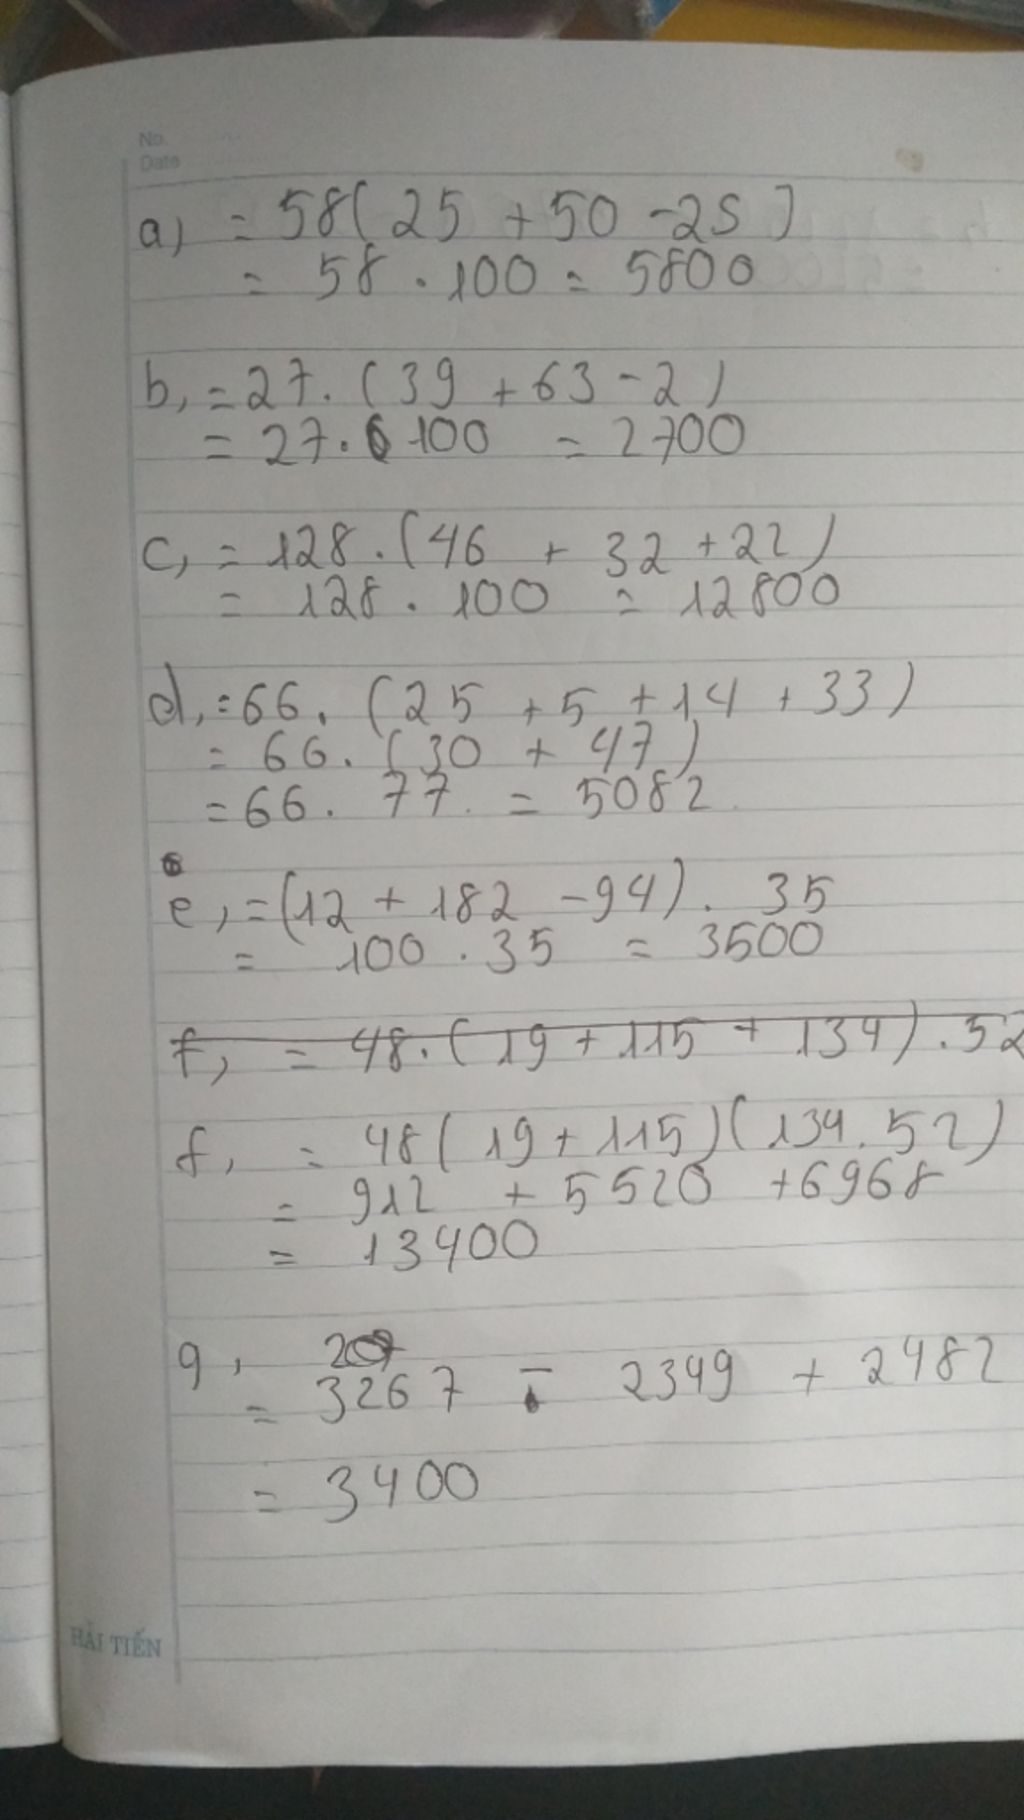 No.
Date
a, = 58(25 + 50 - 25)
= 58 . 100 = 5800
b, = 27. (39 + 63 - 2)
= 27. 100 = 2700
c, = 128. (46 + 32 + 22)
= 128 . 100 = 12800
d, = 66. (25 + 5 + 14 + 33)
= 66. (30 + 47)
= 66. 77. = 5082
e, = (12 + 182 - 94). 35
= 100 . 35 = 3500
f, = 48. (19 + 115 + 134) . 52
f, = 48 (19 + 115)(134. 52)
= 912 + 5520 + 6968
= 13400
g,
= 3267 - 2349 + 2482
= 3400
HẢI TIẾN